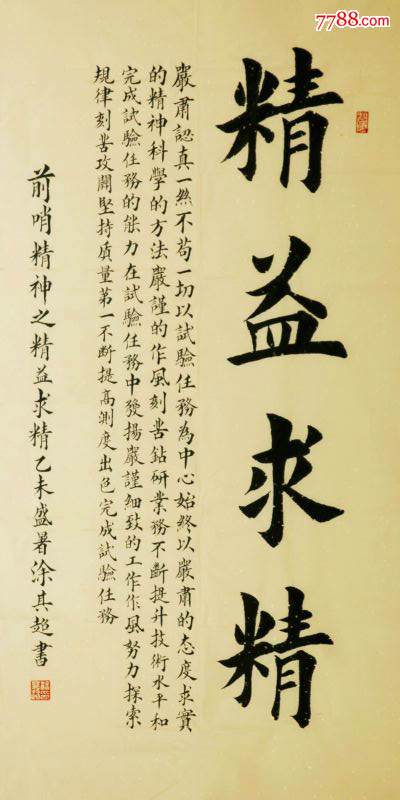 7788.com
精益求精
嚴肅認真一絲不苟一切以試驗任務為中心始終以嚴肅的态度求實
的精神科學的方法嚴謹的作風刻苦鈷研業務不断提升技術水平和
完成試驗任務的能力在試驗任務中發揚嚴謹細致的工作作風努力探索
規律刻苦攻關堅持质量第一不断提高測度出色完成試驗任務
前哨精神之精益求精乙未盛暑涂其超書